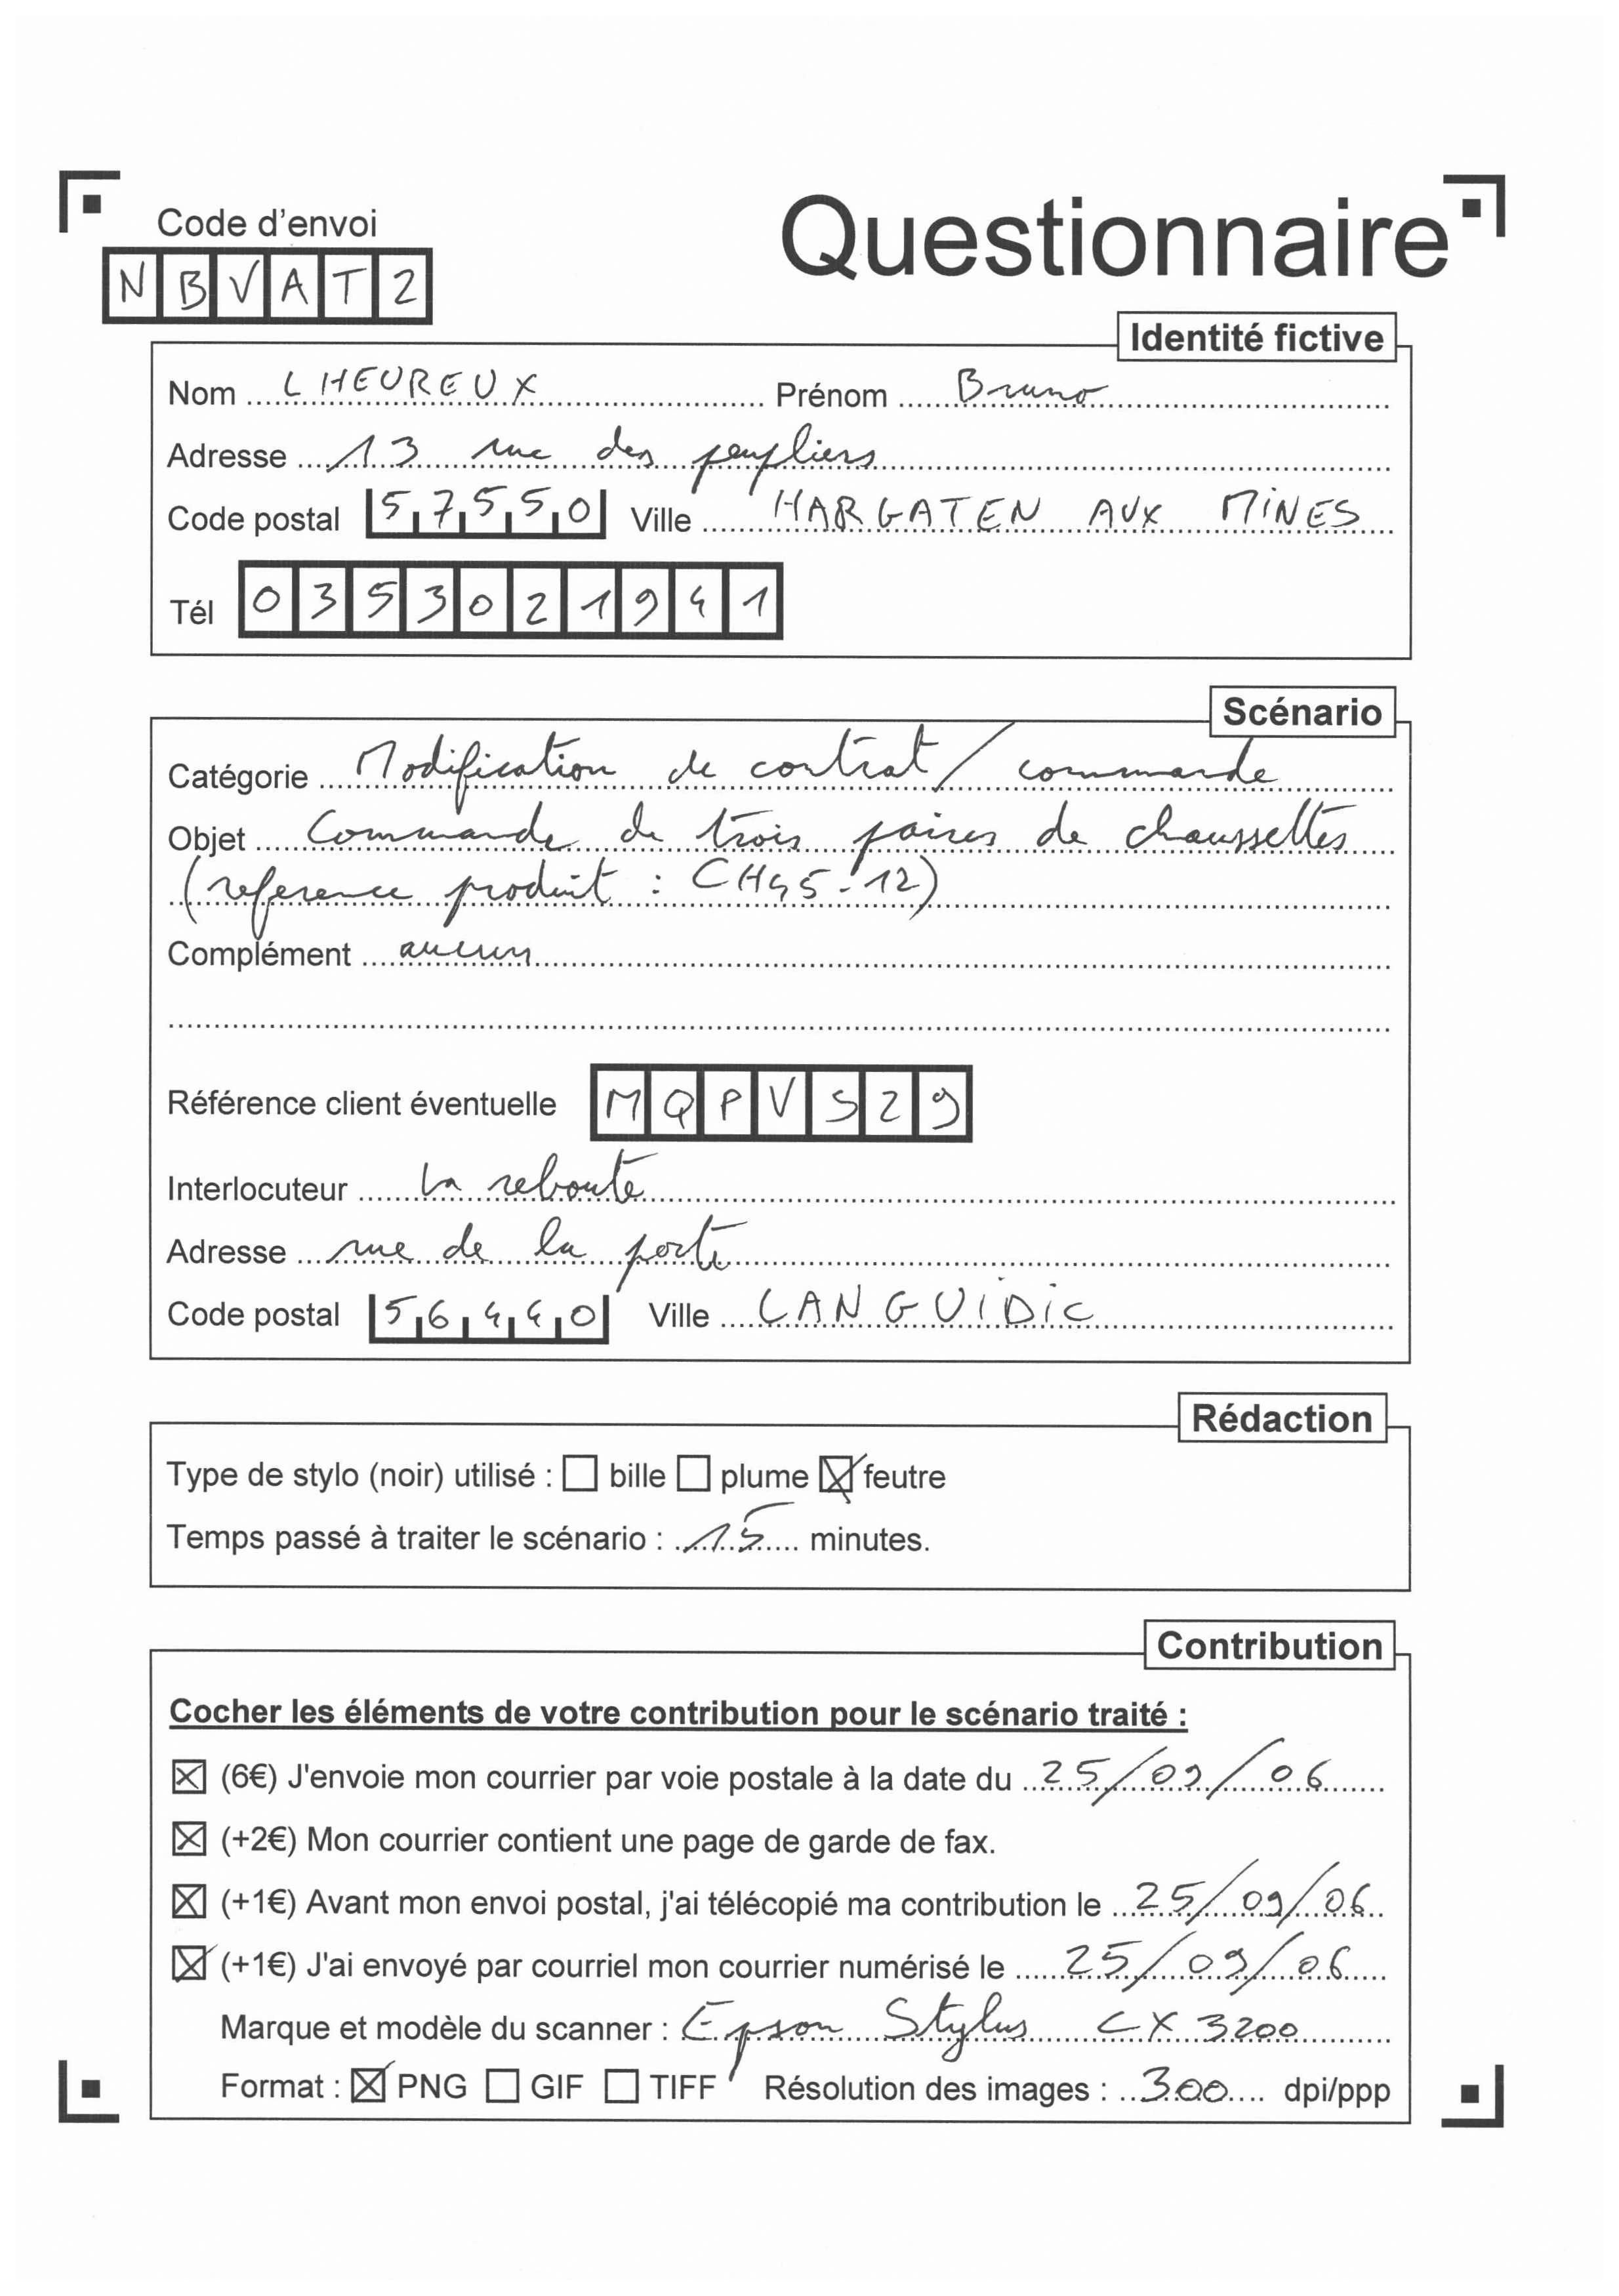 Code d'envoi
Questionnaire
NBVAT2
Identité fictive
Nom LHEUREUX Prénom Bruno
Adresse 13 rue des peupliers
Code postal 57550 Ville HARGATEN AUX MINES
Tél 0353021941
Scénario
Catégorie Modification de contrat / commande
Objet Commande de trois paires de chaussettes
(reference produit : CH45-12)
Complément aucun
Référence client éventuelle MQPVS29
Interlocuteur La reboute
Adresse rue de la porte
Code postal 56440 Ville LANGUIDIC
Rédaction
Type de stylo (noir) utilisé : ☐ bille ☐ plume ☒ feutre
Temps passé à traiter le scénario : 15 minutes.
Contribution
Cocher les éléments de votre contribution pour le scénario traité :
☒ (6€) J'envoie mon courrier par voie postale à la date du 25/09/06
☒ (+2€) Mon courrier contient une page de garde de fax.
☒ (+1€) Avant mon envoi postal, j'ai télécopié ma contribution le 25/09/06
☒ (+1€) J'ai envoyé par courriel mon courrier numérisé le 25/09/06
Marque et modèle du scanner : Epson Stylus CX 3200
Format : ☒ PNG ☐ GIF ☐ TIFF Résolution des images : 300 dpi/ppp